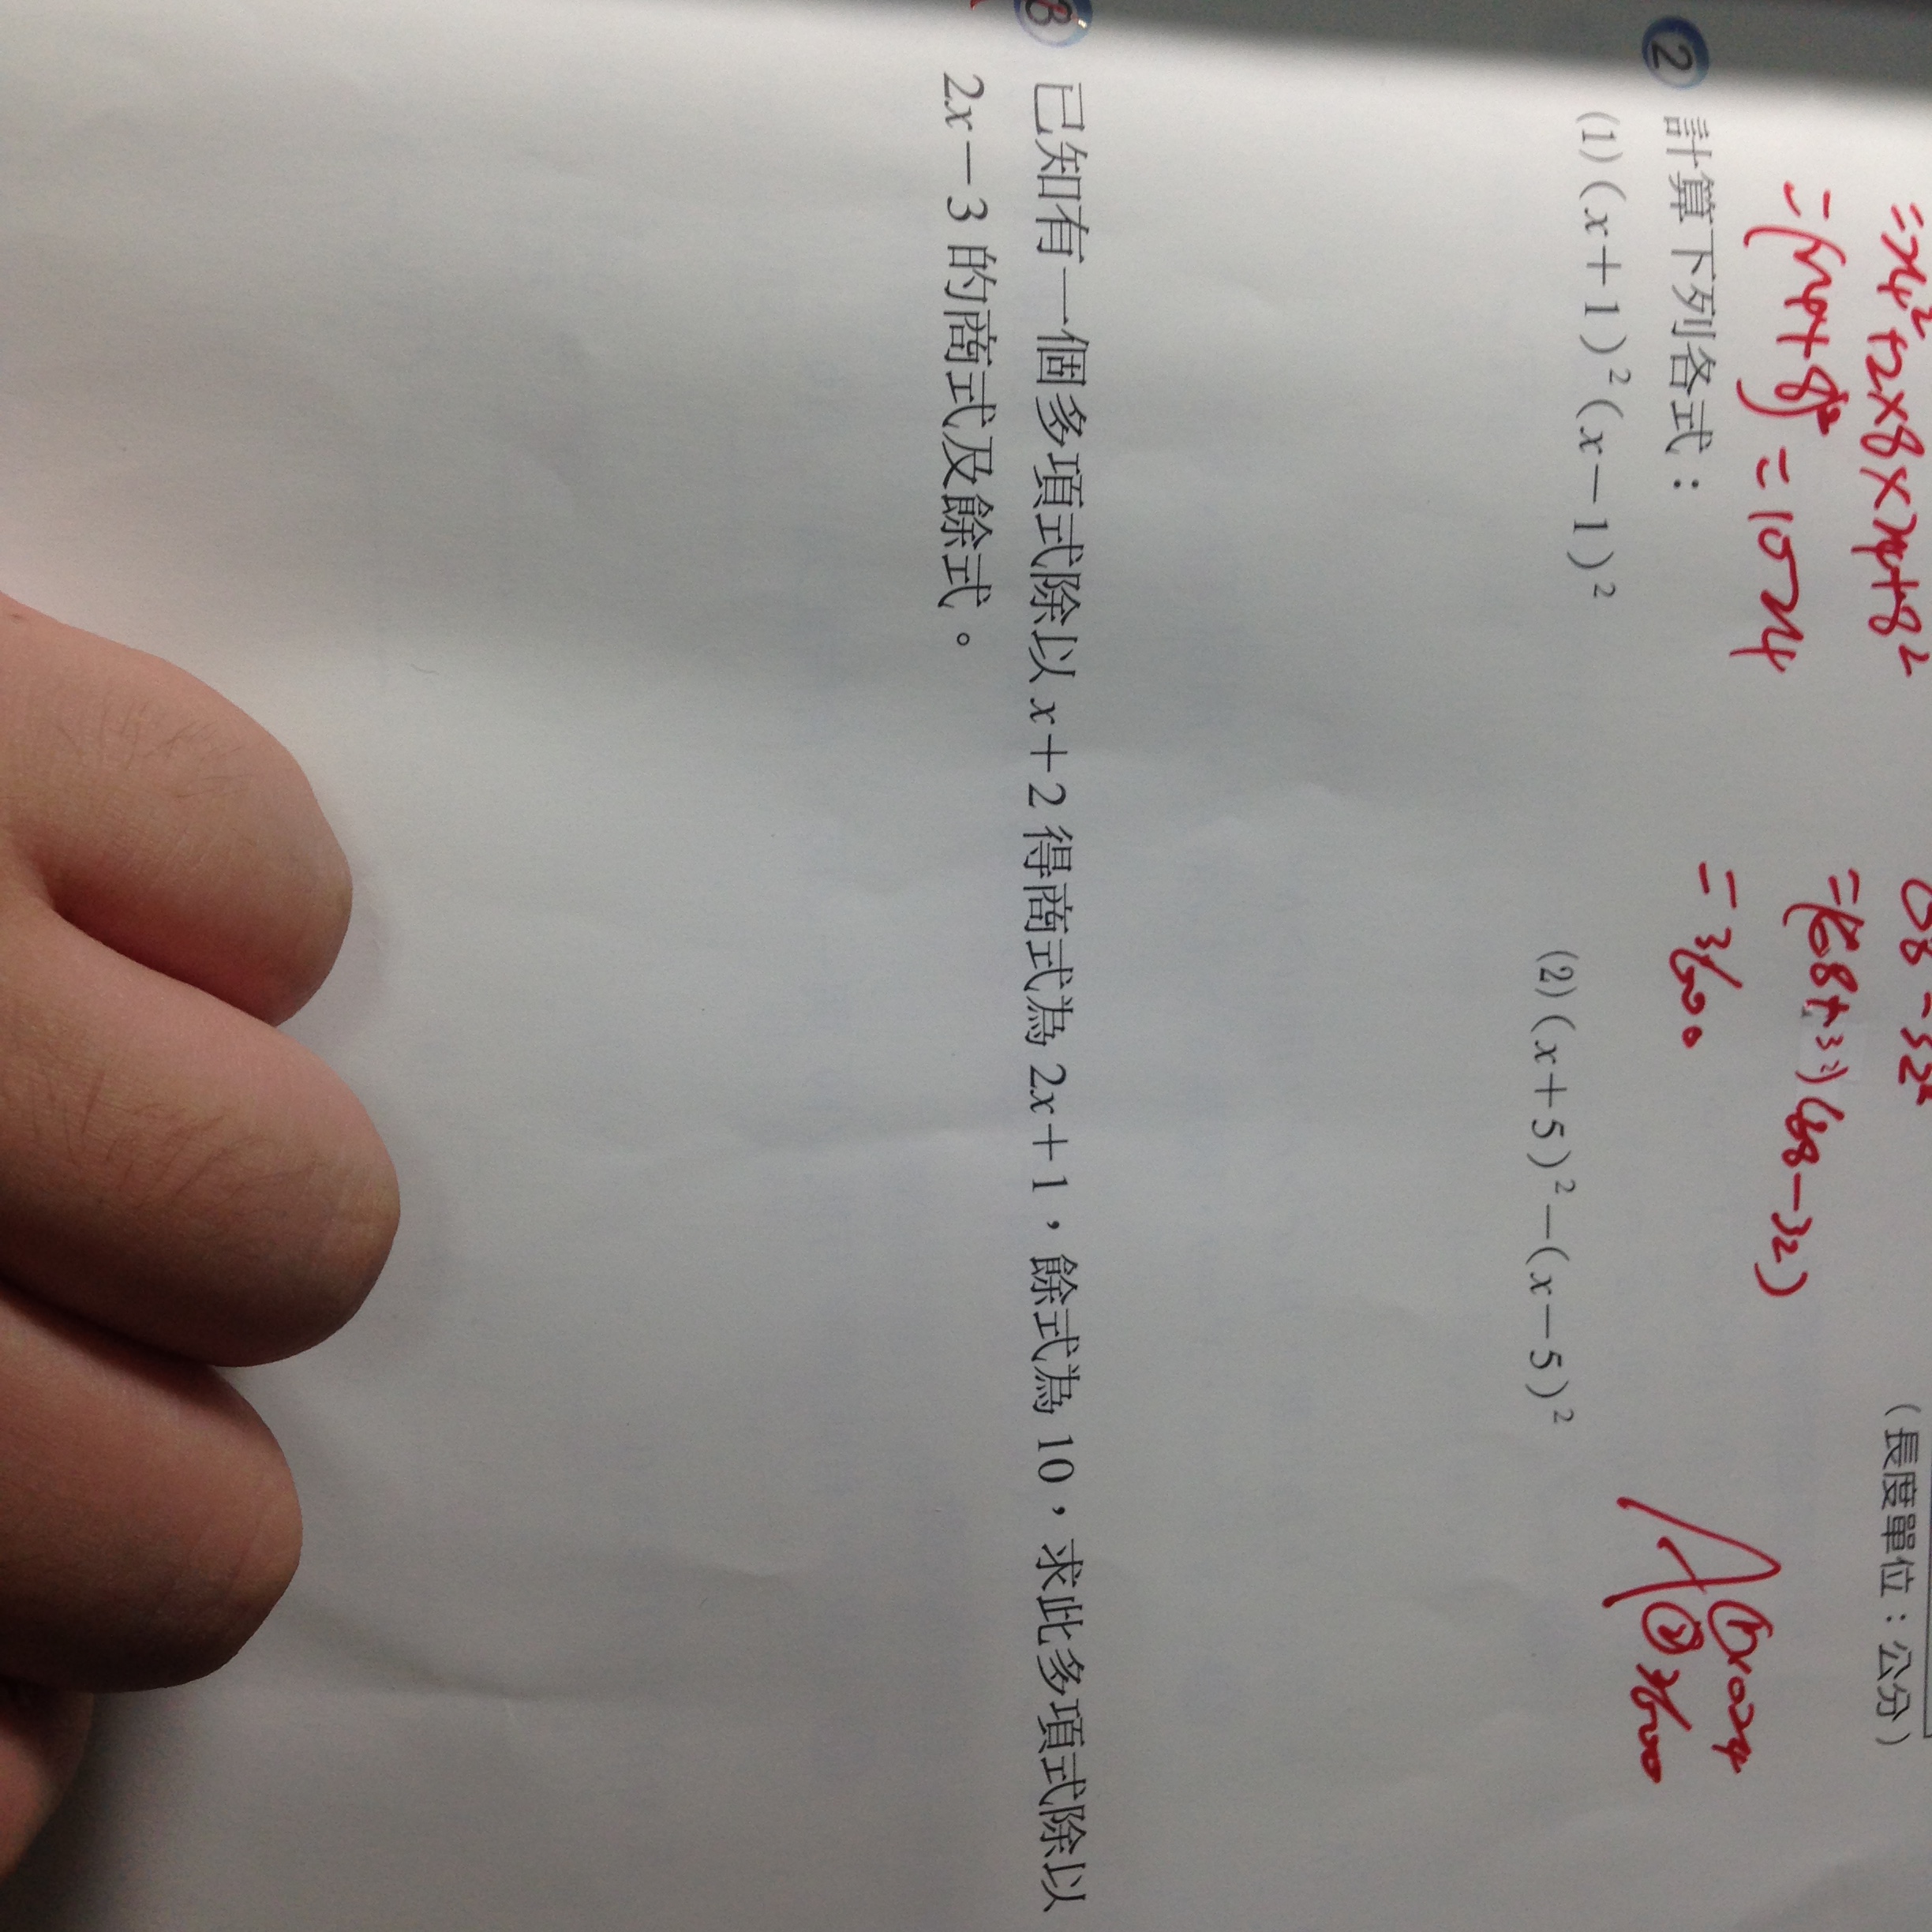 =24²+2×8×24+8²
=(24+8)²=1024
=(68+32)(68-32)
=3600
(長度單位:公分)
2 計算下列各式:
(1)(x+1)²(x-1)²
(2)(x+5)²-(x-5)²
3 已知有一個多項式除以 x+2 得商式為 2x+1,餘式為 10,求此多項式除以
2x-3 的商式及餘式。